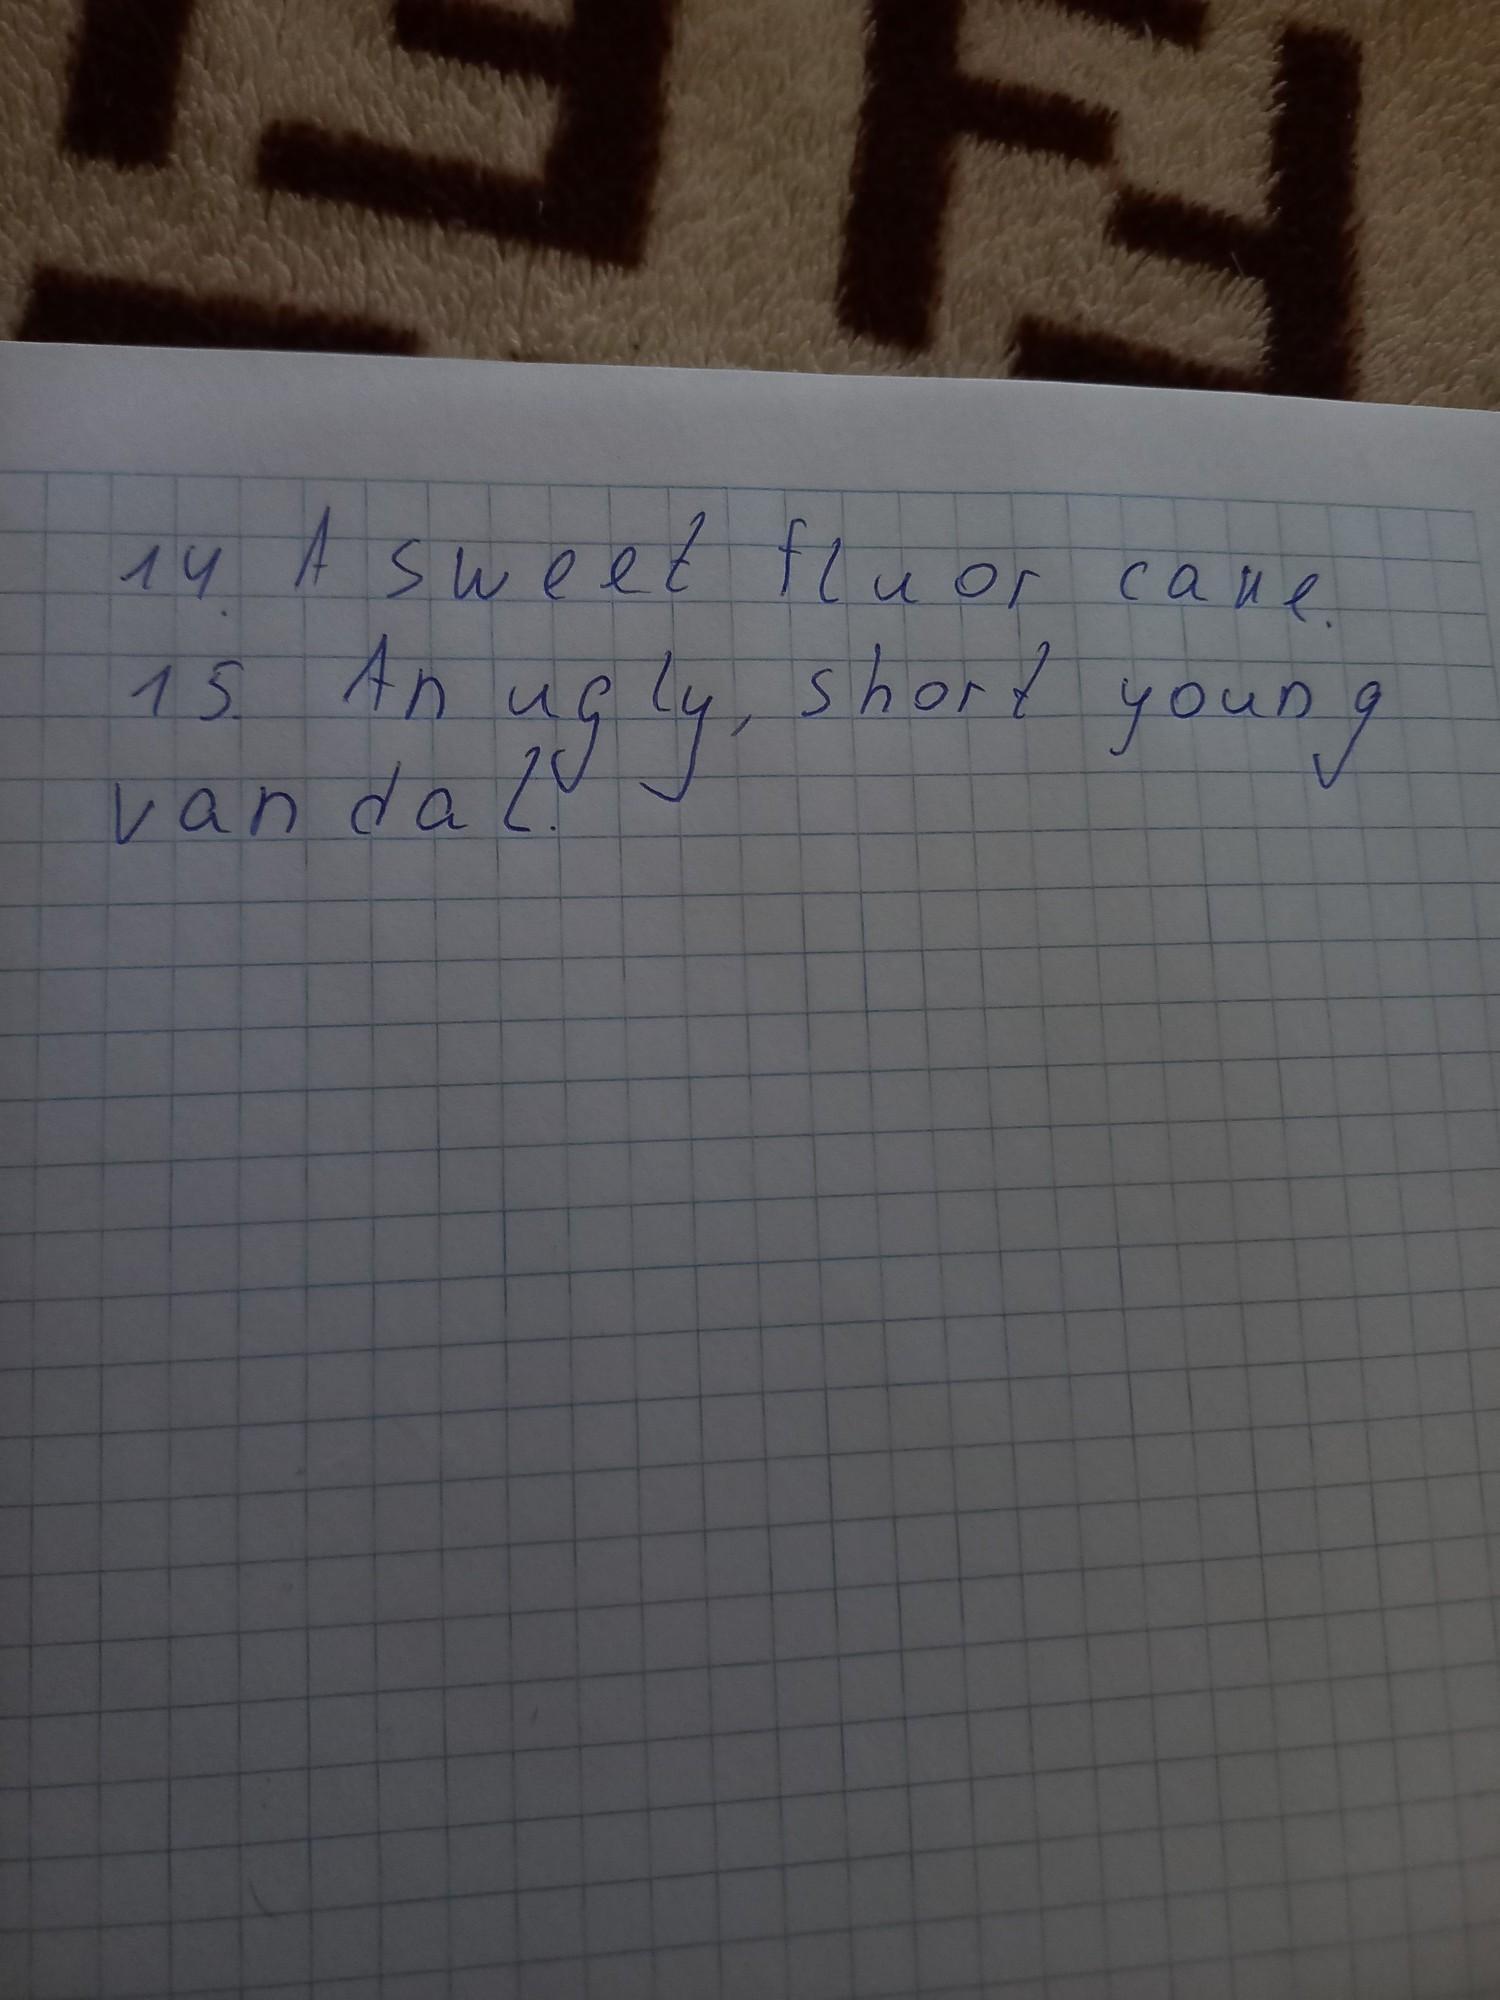 14. A sweet fluor cake.
15. An ugly, short young
vandal.